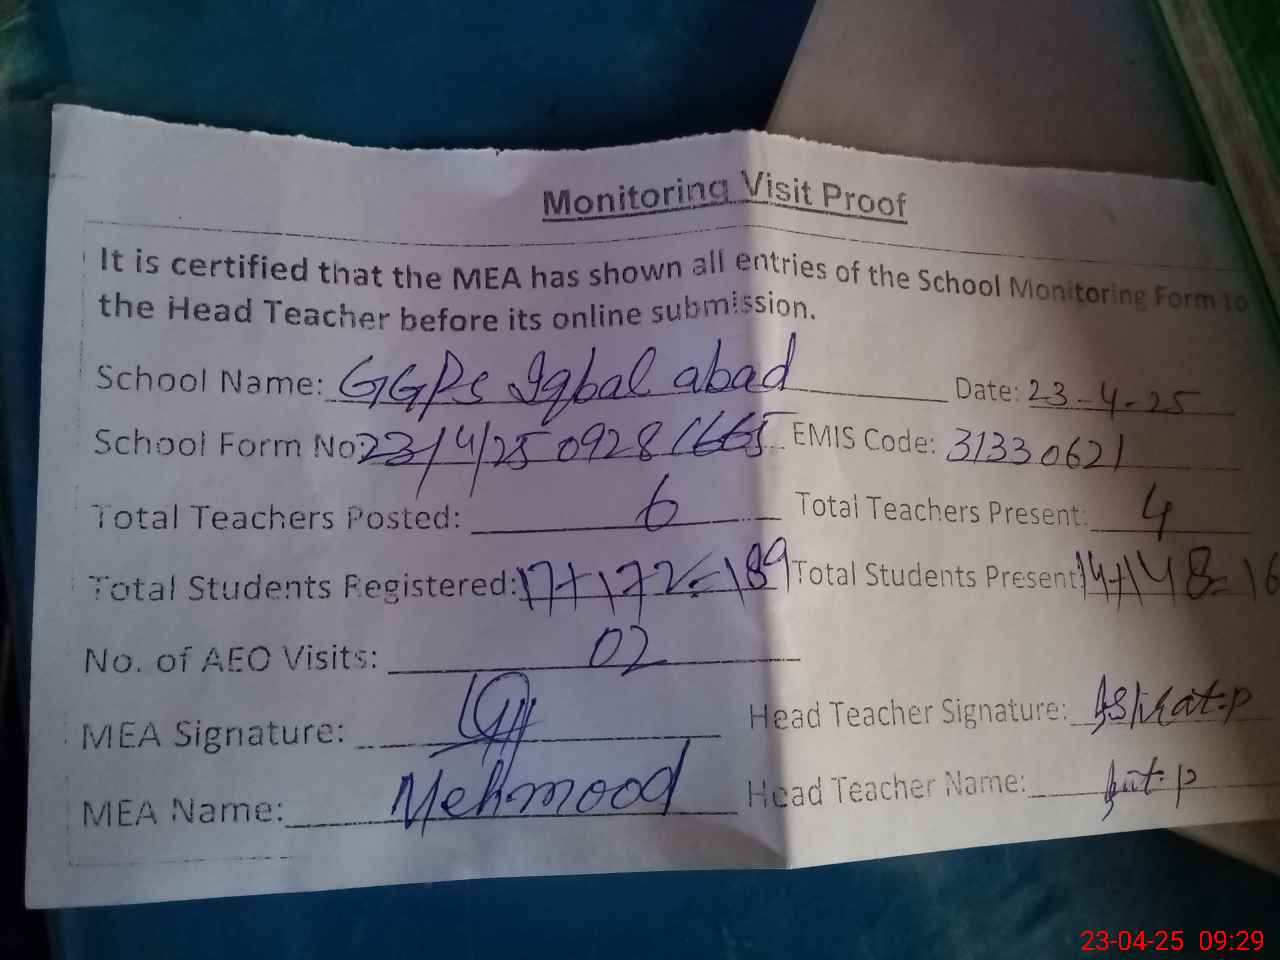 Monitoring Visit Proof
It is certified that the MEA has shown all entries of the School Monitoring Form to
the Head Teacher before its online submission.
School Name: GGPS Iqbal abad Date: 23-4-25
School Form No: 23/4/25 09281665 EMIS Code: 31330621
Total Teachers Posted: 6 Total Teachers Present: 4
Total Students Registered: 17+172=189 Total Students Present: 14+148=16
No. of AEO Visits: 02
MEA Signature: Head Teacher Signature:
MEA Name: Mehmood Head Teacher Name:
23-04-25 09:29